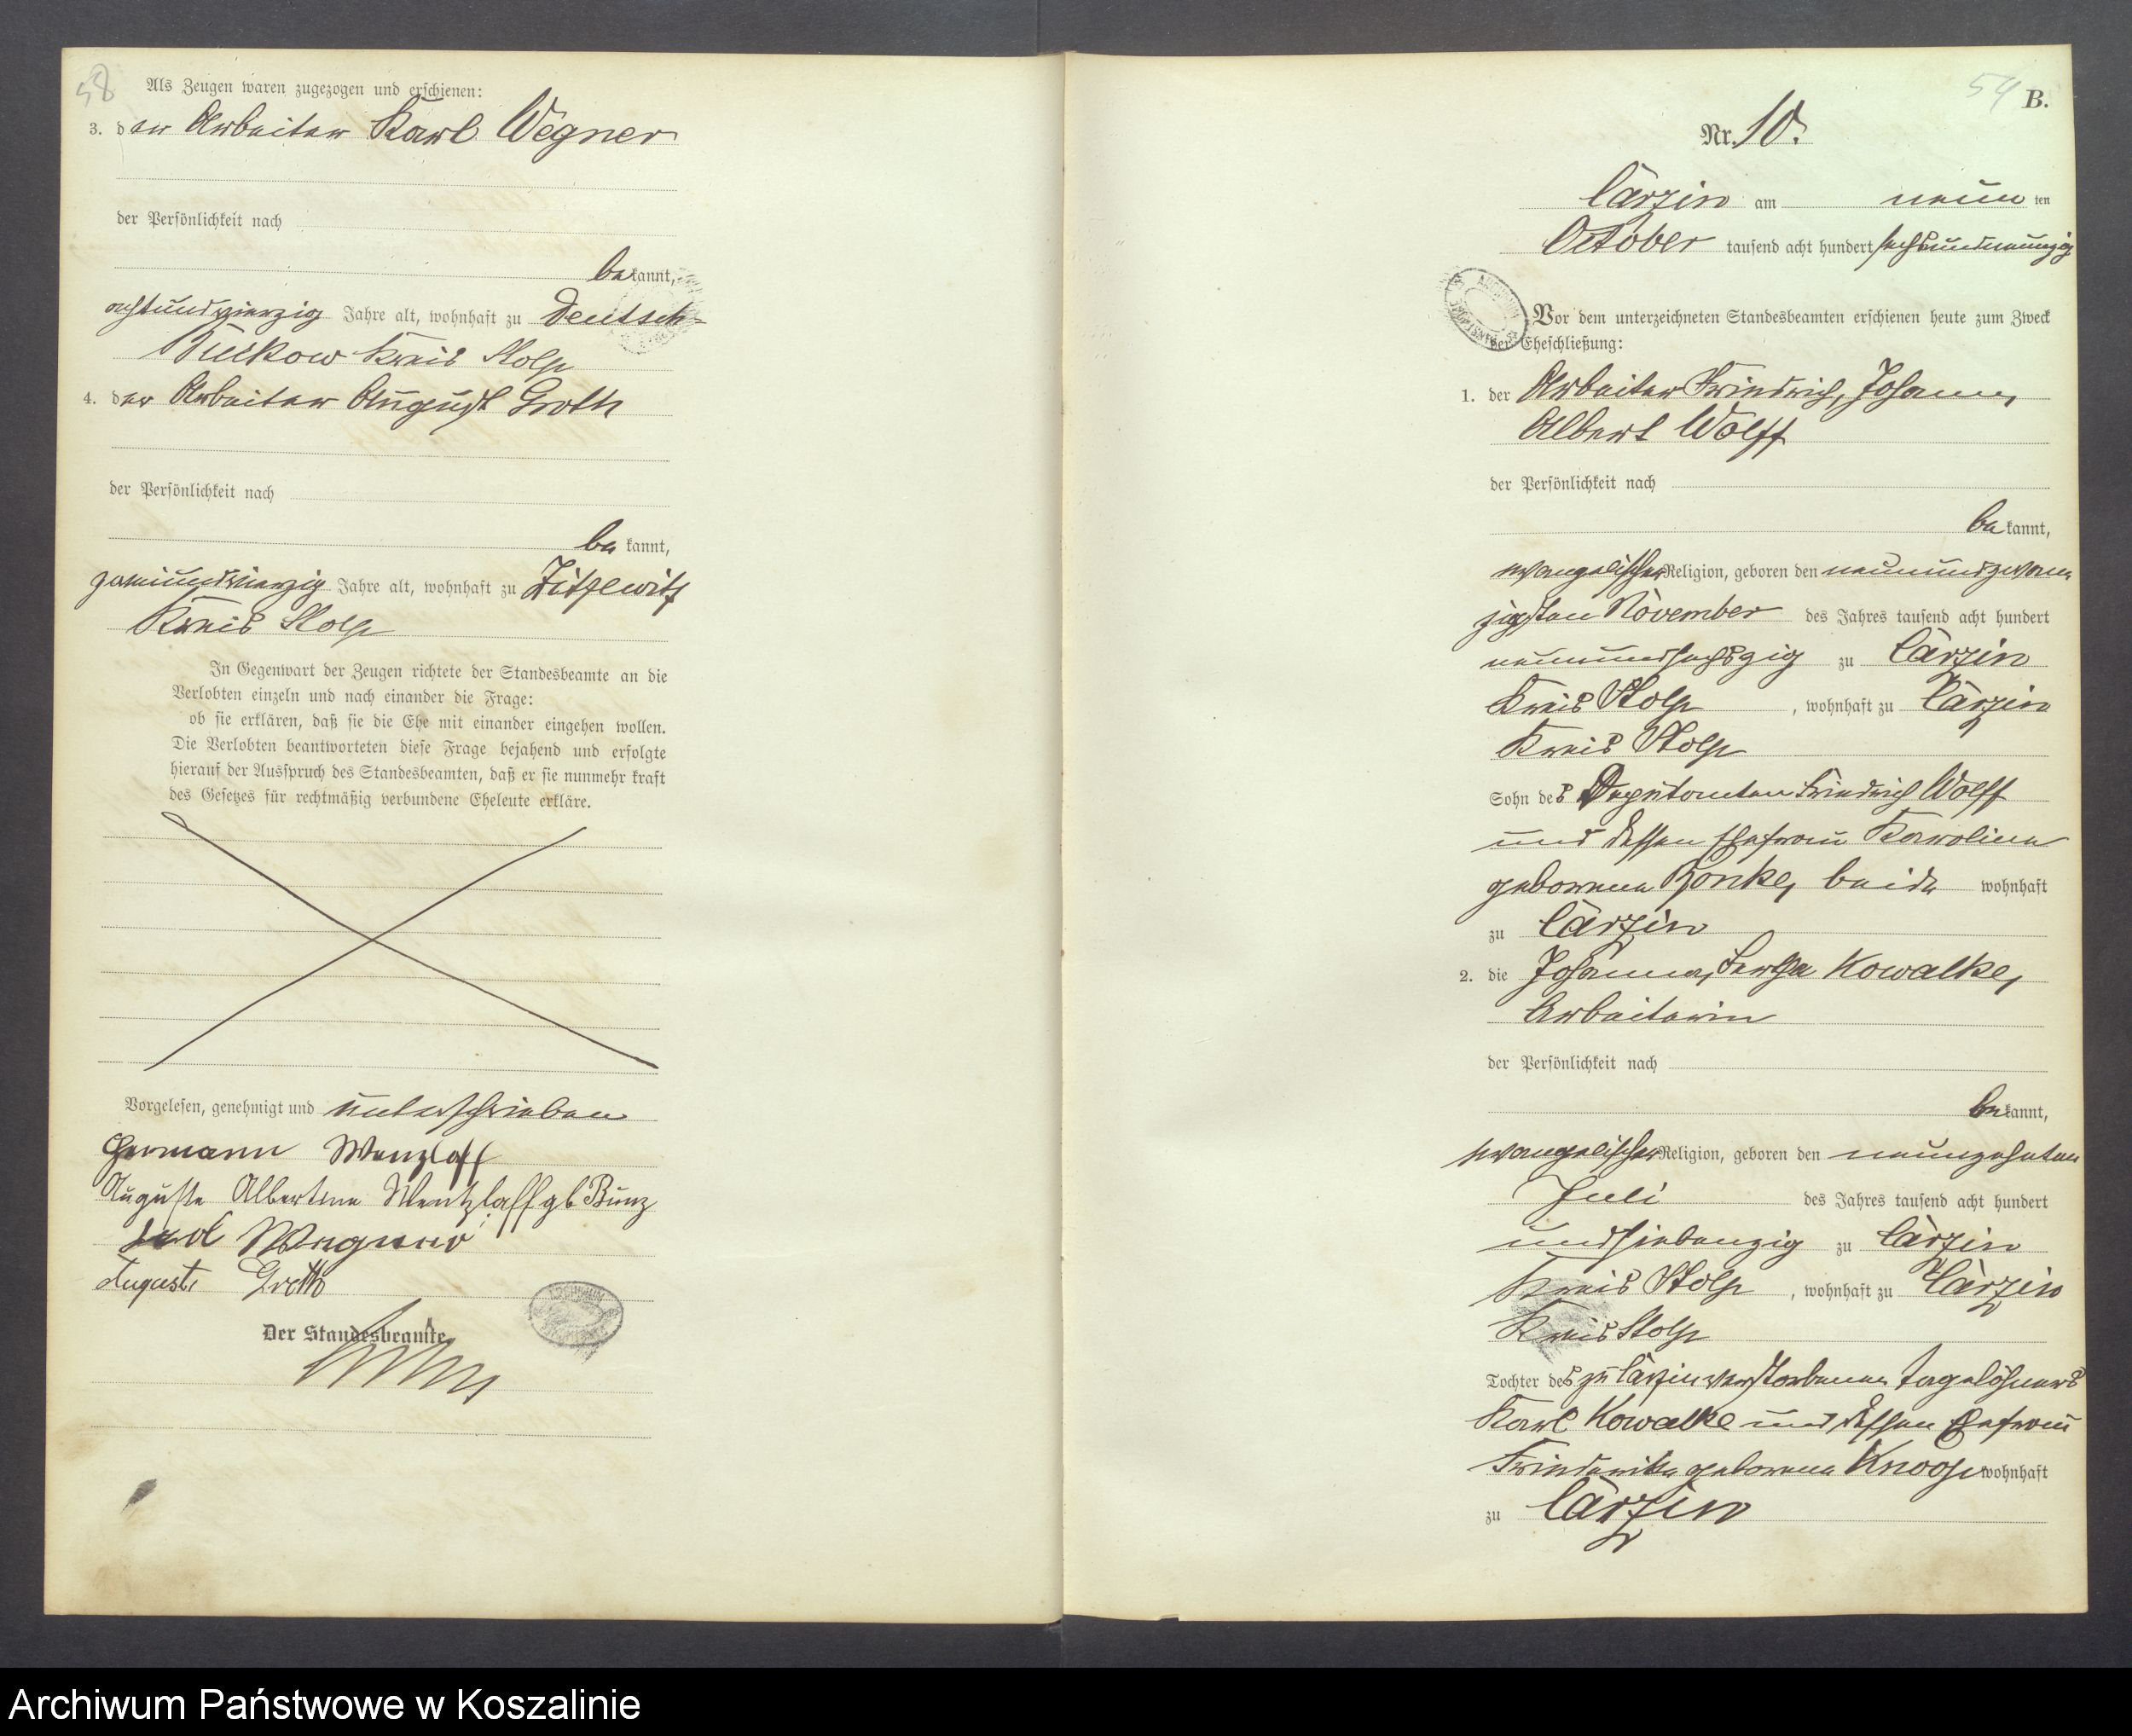 58
Als Zeugen waren zugezogen und erschienen:
3. der Arbeiter Karl Wegner
der Persönlichkeit nach
bekannt,
achtundvierzig Jahre alt, wohnhaft zu Deutsch-
Buckow Kreis Stolp
4. der Arbeiter August Groth
der Persönlichkeit nach
bekannt,
zweiundvierzig Jahre alt, wohnhaft zu Zitzewitz
Kreis Stolp
In Gegenwart der Zeugen richtete der Standesbeamte an die
Verlobten einzeln und nach einander die Frage:
ob sie erklären, daß sie die Ehe mit einander eingehen wollen.
Die Verlobten beantworteten diese Frage bejahend und erfolgte
hierauf der Ausspruch des Standesbeamten, daß er sie nunmehr kraft
des Gesetzes für rechtmäßig verbundene Eheleute erkläre.
Vorgelesen, genehmigt und unterschrieben
Hermann Wenzlaff
Auguste Albertine Wentzlaff gb Bunz
Karl Wegner
August Groth
Der Standesbeamte.
54 B.
Nr. 10.
Carzin am neun ten
October tausend acht hundert sechsundneunzig
Vor dem unterzeichneten Standesbeamten erschienen heute zum Zweck
der Eheschließung:
1. der Arbeiter Friedrich, Johann,
Albert Wolff
der Persönlichkeit nach
bekannt,
evangelischer Religion, geboren den neunundzwan
zigsten November des Jahres tausend acht hundert
neunundsechszig zu Carzin
Kreis Stolp, wohnhaft zu Carzin
Kreis Stolp
Sohn des Deputanten Friedrich Wolff
und dessen Ehefrau Karoline
geborene Zonke, beide wohnhaft
zu Carzin
2. die Johanna, Bertha Kowalke,
Arbeiterin
der Persönlichkeit nach
bekannt,
evangelischer Religion, geboren den neunzehnten
Juli des Jahres tausend acht hundert
undsiebenzig zu Carzin
Kreis Stolp, wohnhaft zu Carzin
Kreis Stolp
Tochter des zu Carzin verstorbenen Tagelöhners
Karl Kowalke und dessen Ehefrau
Friederike geborene Knoop wohnhaft
zu Carzin
Archiwum Państwowe w Koszalinie